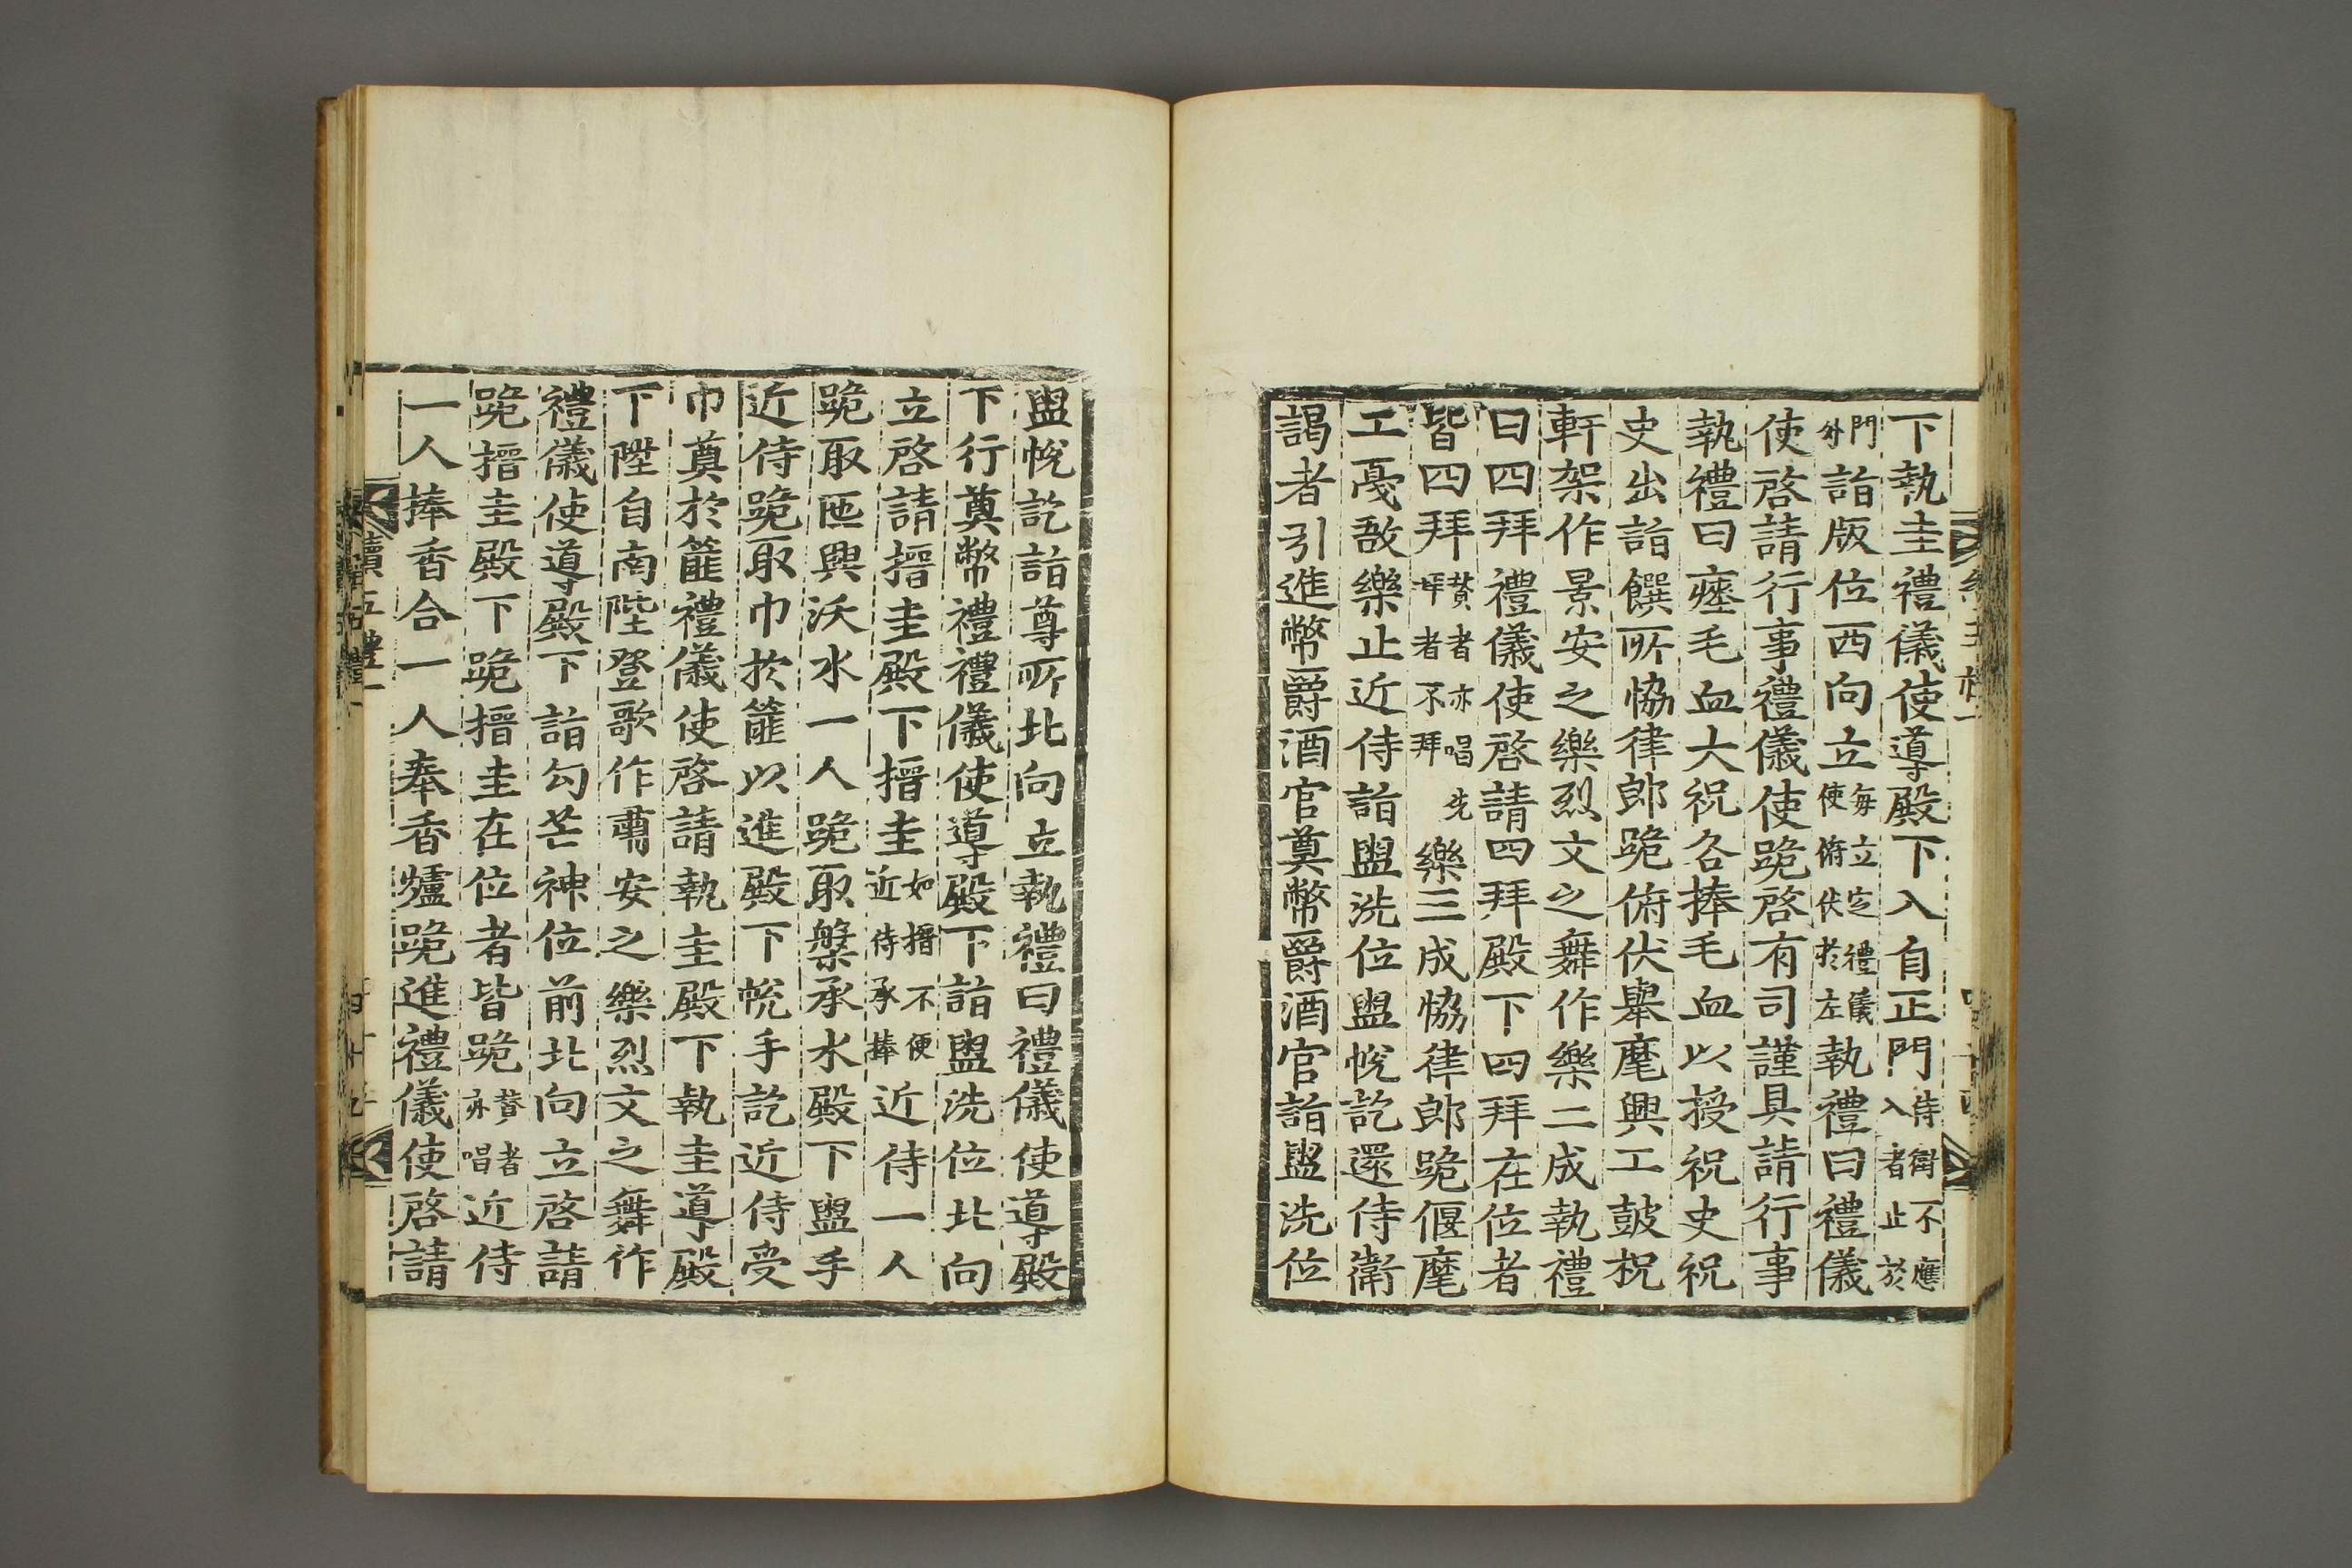 下執圭禮儀使導殿下入自正門侍衛不應入者止於
門外詣版位西向立每立定禮儀使俯伏於左執禮曰禮儀
使啓請行事禮儀使跪啓有司謹具請行事
執禮曰瘞毛血大祝各捧毛血以授祝史祝
史出詣饌所恊律郎跪俯伏擧麾興工鼓柷
軒架作景安之樂烈文之舞作樂二成執禮
曰四拜禮儀使啓請四拜殿下四拜在位者
皆四拜贊者亦唱先拜者不拜樂三成恊律郎跪偃麾
工戞敔樂止近侍詣盥洗位盥帨訖還侍衛
謁者引進幣爵酒官奠幣爵酒官詣盥洗位
盥帨訖詣尊所北向立執禮曰禮儀使導殿
下行奠幣禮禮儀使導殿下詣盥洗位北向
立啓請搢圭殿下搢圭如搢不便近侍承捧近侍一人
跪取匜興沃水一人跪取槃承水殿下盥手
近侍跪取巾於篚以進殿下帨手訖近侍受
巾奠於篚禮儀使啓請執圭殿下執圭導殿
下陞自南陛登歌作肅安之樂烈文之舞作
禮儀使導殿下詣勾芒神位前北向立啓請
跪搢圭殿下跪搢圭在位者皆跪贊者亦唱近侍
一人捧香合一人奉香爐跪進禮儀使啓請
續五禮一